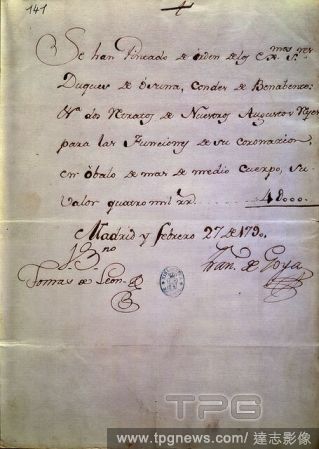 141
Se han Pintado de orden de los Exmos Sres
Duques de Osuna, Condes de Benabente:
dos Retratos de Nuestros Augustos Reyes
para las Funciones de su coronacion,
en óbalo de mas de medio cuerpo, su
valor quatro mil rr. 4000.
Madrid y febrero 27 de 1790.
Tomas de Leon
Fran. de Goya
TPG
www.tpgnews.com/ 達志影像